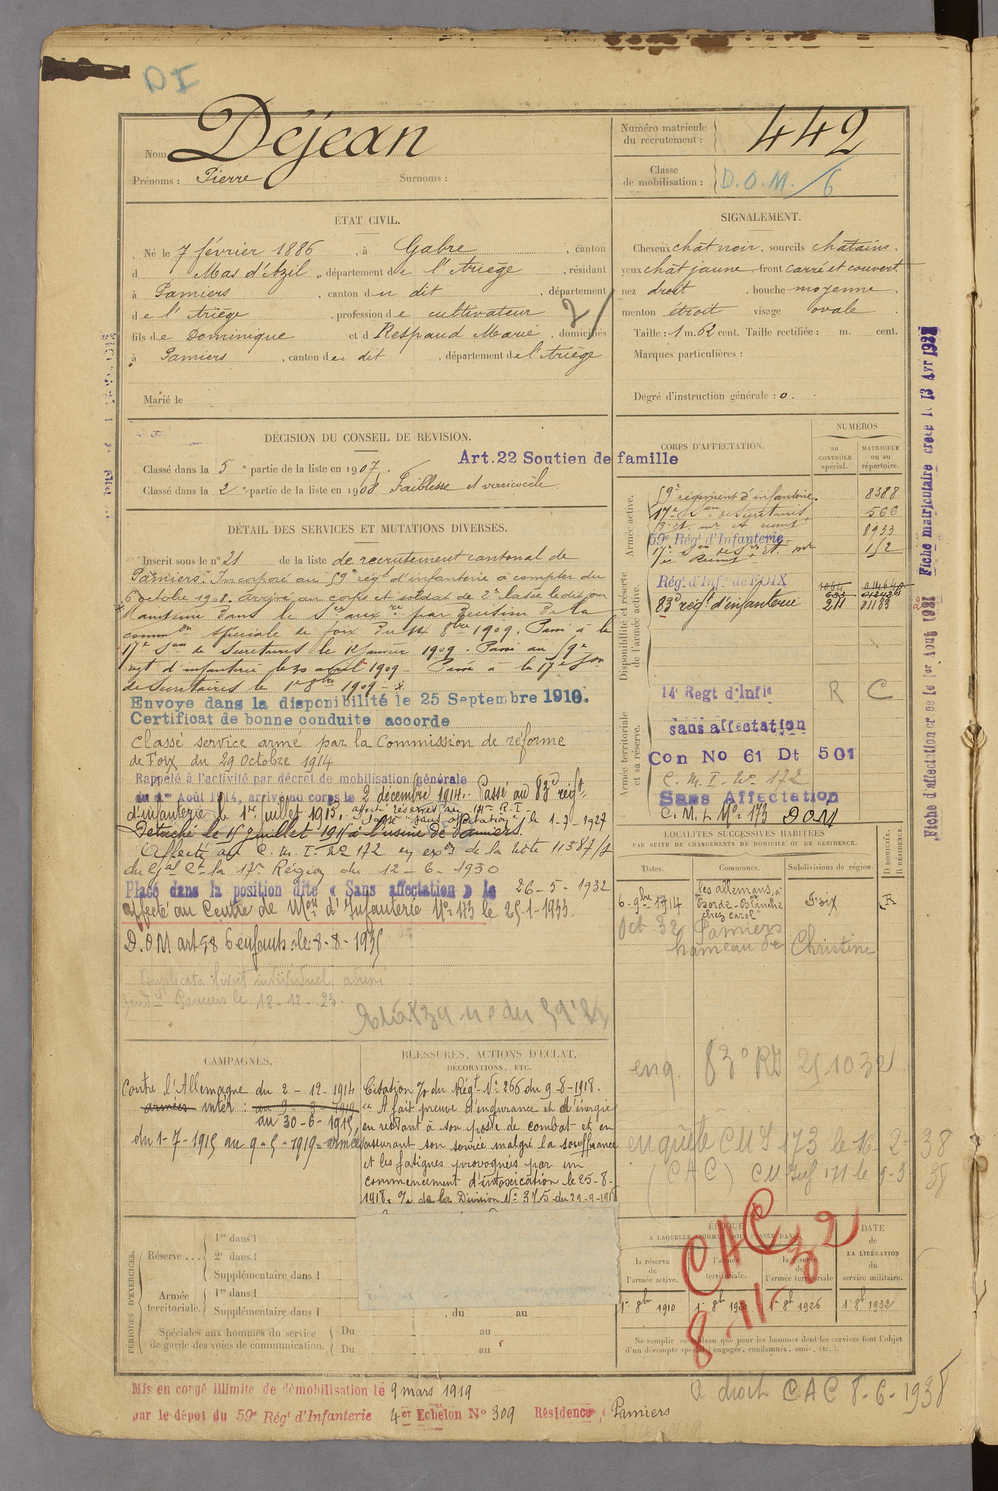 DI
Nom Déjean
Prénoms : Pierre Surnoms :
Numéro matricule du recrutement : 442
Classe de mobilisation : D.O.M. / 6
ÉTAT CIVIL.
Né le 7 février 1886, à Gabre, canton
d Mas d'Azil, département de l'Ariège, résidant
à Pamiers, canton du dit, département
de l'Ariège, profession de cultivateur
fils de Dominique et d Respaud Marie, domiciliés
à Pamiers, canton du dit, département de l'Ariège
Marié le
2/
SIGNALEMENT.
Cheveux chat noir, sourcils châtains,
yeux chat jaune front carré et couvert
nez droit, bouche moyenne,
menton étroit visage ovale
Taille : 1 m. 62 cent. Taille rectifiée : m. cent.
Marques particulières :
Degré d'instruction générale : 0.
DÉCISION DU CONSEIL DE REVISION.
Classé dans la 5e partie de la liste en 1907.
Art. 22 Soutien de famille
Classé dans la 2e partie de la liste en 1908 Faiblesse et varicocèle
DÉTAIL DES SERVICES ET MUTATIONS DIVERSES.
Inscrit sous le no 21 de la liste de recrutement cantonal de
Pamiers. Incorporé au 59e régt d'infanterie à compter du
6 octobre 1908. Arrivé au corps et soldat de 2e classe le dit jour
Maintenu dans le Sce auxre par décision de la
spéciale de Foix du 8bre 1909. Passé à la
17e Son de Secrétaires le 1er Janvier 1909. Passé au 59e
régt d'infanterie le 20 avril 1909 - Passé à la 17e Son
de Secrétaires le 1er 8bre 1909
Envoyé dans la disponibilité le 25 Septembre 1910.
Certificat de bonne conduite accordé
Classé service armé par la Commission de réforme
de Foix du 29 octobre 1914
Rappelé à l'activité par décret de mobilisation générale
du 1er Août 1914, arrivé au corps le 2 décembre 1914. Passé au 83e régt
d'infanterie le 1er juillet 1915.
le 1-7-1927
Détaché le 1er juillet 1915 à l'usine de Pamiers.
Affecté au C. M. I. No 172 en exon de la Note 11587/
du Gal Ct la 17e Région du 12-6-1930
Placé dans la position dite « Sans affectation » le 26-5-1932
affecté au Centre de Mon d'Infanterie No 173 le 25-1-1933.
D.O.M art 58 6 enfants : le 8-8-1935
Duplicata livret individuel adressé
Pamiers le 18-12-23.
CORPS D'AFFECTATION.
NUMÉROS
au contrôle spécial.
matricule ou au répertoire.
Armée active.
59e régiment d'infanterie. 8388
17e Son de Secrétaires 560
8933
59e Régt d'Infanterie
1/2
Disponibilité et réserve de l'armée active.
Régt d'Infie de FOIX
83e régt d'infanterie 211 01183
Armée territoriale et sa réserve.
14e Regt d'Infie R C
sans affectation
Con No 61 Dt 501
C. M. I. No 172
Sans Affectation
C. M. I. No 173 DOM
LOCALITÉS SUCCESSIVES HABITÉES
PAR SUITE DE CHANGEMENTS DE DOMICILE OU DE RÉSIDENCE.
Dates. Communes. Subdivisions de région. D DOMICILE. R RÉSIDENCE.
6-9bre 1914 les allemans, à Borde-Blanche chez Carol Foix R
Oct 32 Pamiers
hameau de Christine
enq. 83e RI 251032
enquête CMI 173 le 16-2-38
(CAC) CM Inf 171 le 9-3 38
CAMPAGNES.
Contre l'Allemagne du 2-12-1914
au 30-6-1915,
du 1-7-1915 au 9-5-1919
BLESSURES, ACTIONS D'ÉCLAT, DÉCORATIONS, ETC.
Citation O/ du Régt No 266 du 9-8-1918.
"A fait preuve d'endurance et d'énergie
en restant à son poste de combat et en
assurant son service malgré la souffrance
et les fatigues provoquées par un
commencement d'intoxication le 25-8-
1918. O/ de la Division No 375 du 29-9-1918
PÉRIODES D'EXERCICES.
Réserve... 1re dans l
2e dans l
Supplémentaire dans l
Armée territoriale. 1re dans l
Supplémentaire dans l , du au
Spéciales aux hommes du service de garde des voies de communication. Du au
Du au
DATE de LA LIBÉRATION du service militaire.
la réserve de l'armée active.
1er 8bre 1910 1er 8bre 1920 1er 8bre 1926 1er 8bre 1932
CAC 32
8-11-
Mis en congé illimité de démobilisation le 9 mars 1919
par le dépôt du 59e Régt d'Infanterie 4er Echelon No 309 Résidence, Pamiers
a droit CAC 8-6-1938
Fiche matriculaire créée le 13 Avr 1937
Fiche d'affectation créée le 1er Août 1937